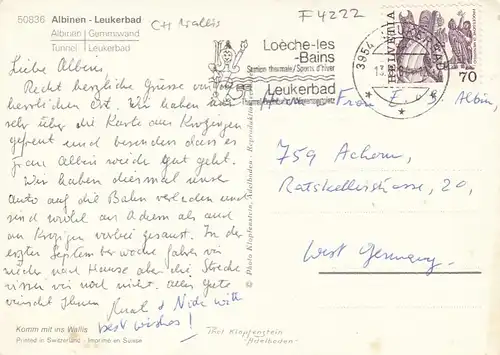 50836 Albinen - Leukerbad
Albinen Gemmiwand
Tunnel Leukerbad
CH Wallis
F4222
Loèche-les
-Bains
Station thermale/Sports d'hiver
Leukerbad
3954
HELVETIA
70
Liebe Albins
Recht herzliche Grüsse von
herrlichen Ort. Wir haben uns
sehr über die Karte aus Krozingen
gefreut und besonders dass es
Frau Albin wieder gut geht.
Wir haben diesmal unser
Auto auf die Bahn verladen und
sind wohl an Achern als auch
an Krozingen vorbei gesaust. In der
ersten September woche fahren wir
wieder nach Hause aber die Strecke
wissen wir noch nicht. Alles Gute
wünscht Ihnen
Knut & with
best wishes!
Herrn Frau E. & G. Albin,
759 Achern,
Ratskellerstrasse, 20,
West Germany.
© Photo Klopfenstein, Adelboden - Reproduktion
Komm mit ins Wallis
Printed in Switzerland - Imprimé en Suisse
Phot Klopfenstein
Adelboden-